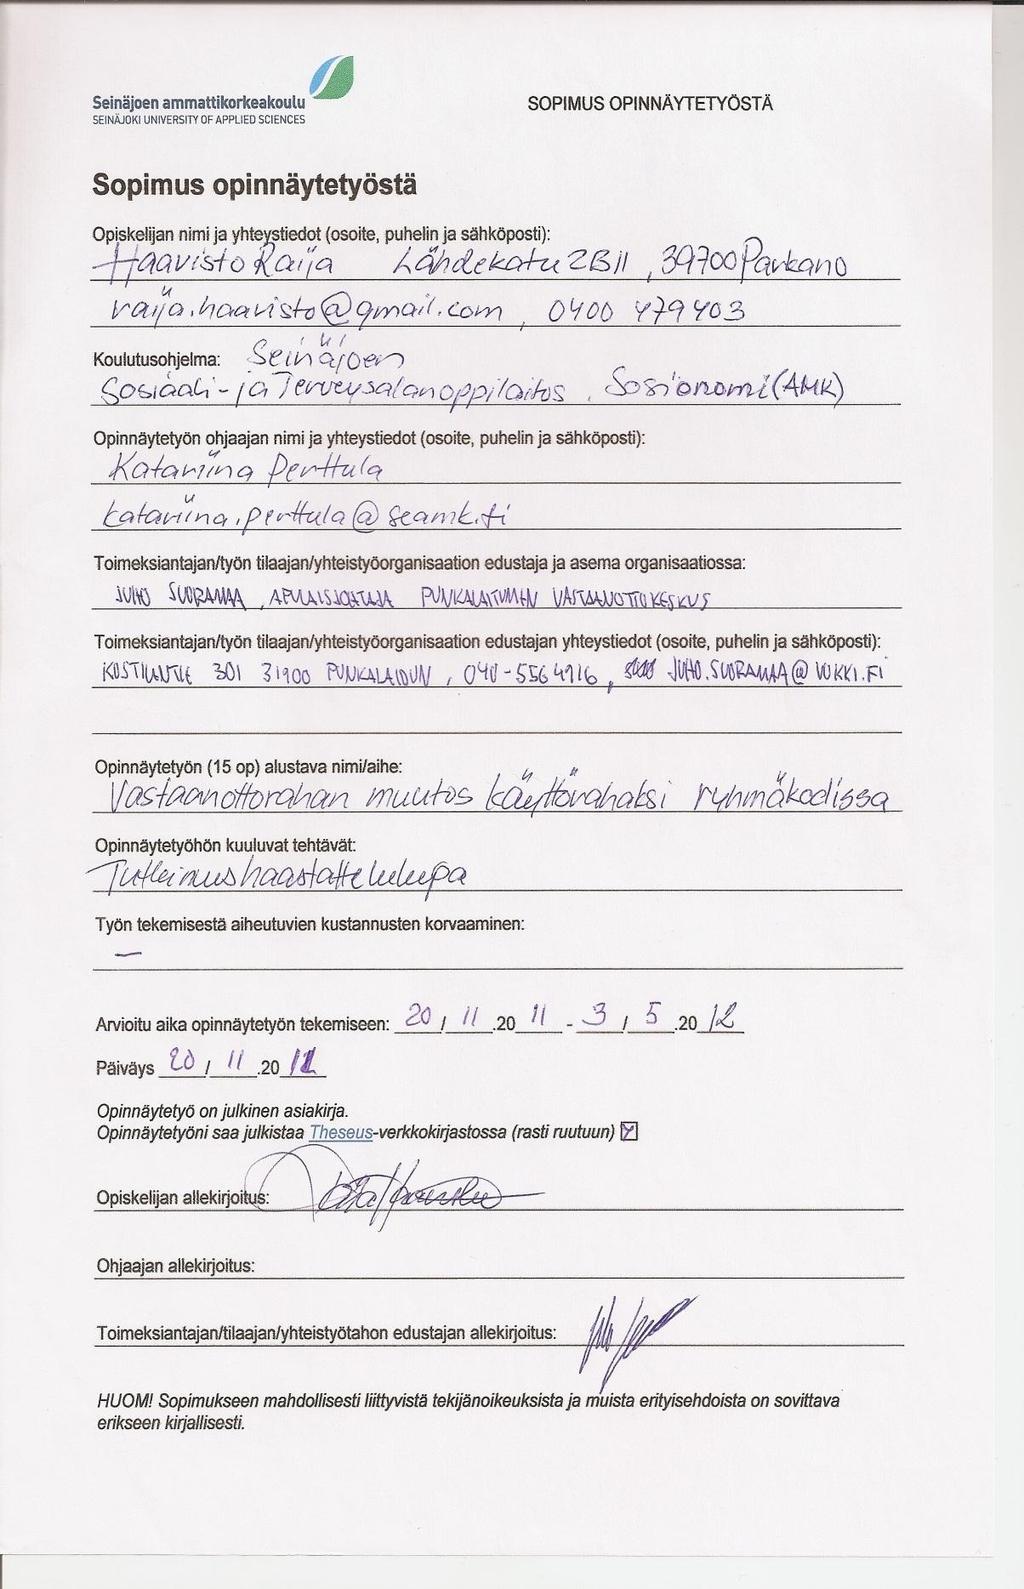 Seinäjoen ammattikorkeakoulu
SEINÄJOKI UNIVERSITY OF APPLIED SCIENCES
SOPIMUS OPINNÄYTETYÖSTÄ
Sopimus opinnäytetyöstä
Opiskelijan nimi ja yhteystiedot (osoite, puhelin ja sähköposti):
Haavisto Raija Lähdekatu 2B11, 39700 Parkano
raija.haavisto@gmail.com, 0400 479403
Koulutusohjelma: Seinäjoen
Sosiaali- ja Terveysalanoppilaitos, Sosionomi (AMK)
Opinnäytetyön ohjaajan nimi ja yhteystiedot (osoite, puhelin ja sähköposti):
Katariina Perttula
katariina.perttula@seamk.fi
Toimeksiantajan/työn tilaajan/yhteistyöorganisaation edustaja ja asema organisaatiossa:
JUHO SUORAMAA, APULAISJOHTAJA PUNKALAITUMEN VASTAANOTTOKESKUS
Toimeksiantajan/työn tilaajan/yhteistyöorganisaation edustajan yhteystiedot (osoite, puhelin ja sähköposti):
301 31900 PUNKALAIDUN, 040-5564916, JUHO.SUORAMAA@VOKKI.FI
Opinnäytetyön (15 op) alustava nimi/aihe:
Vastaanottorahan muutos käyttörahaksi ryhmäkodissa
Opinnäytetyöhön kuuluvat tehtävät:
Tutkimushaastattelulupa
Työn tekemisestä aiheutuvien kustannusten korvaaminen:
—
Arvioitu aika opinnäytetyön tekemiseen: 20 / 11 .20 11 - 3 / 5 .20 12
Päiväys 20 / 11 .20 11
Opinnäytetyö on julkinen asiakirja.
Opinnäytetyöni saa julkistaa Theseus-verkkokirjastossa (rasti ruutuun)
Opiskelijan allekirjoitus:
Ohjaajan allekirjoitus:
Toimeksiantajan/tilaajan/yhteistyötahon edustajan allekirjoitus:
HUOM! Sopimukseen mahdollisesti liittyvistä tekijänoikeuksista ja muista erityisehdoista on sovittava
erikseen kirjallisesti.